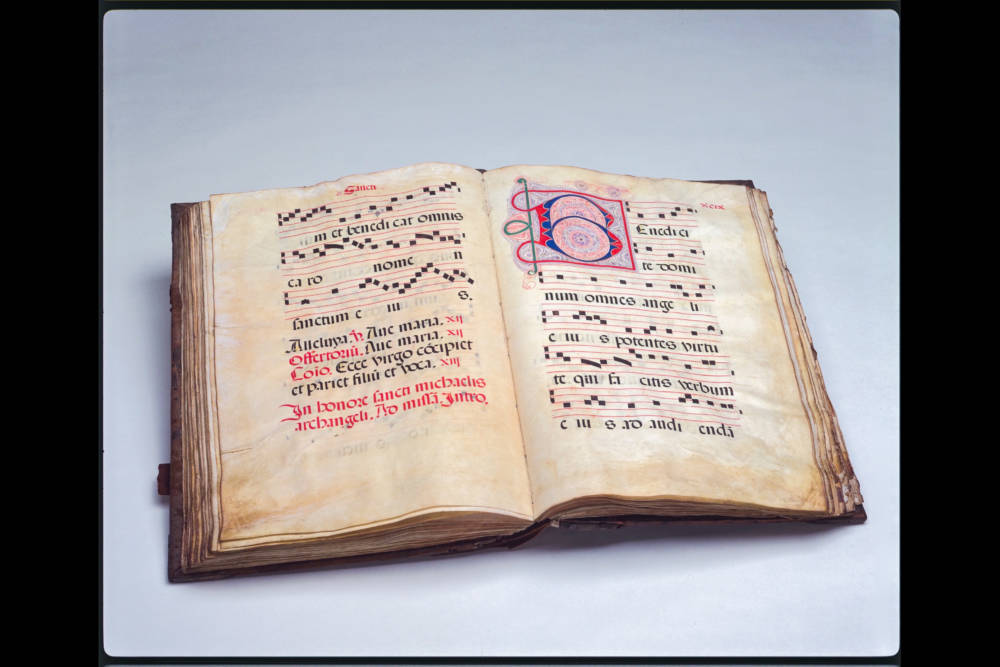 Sancti
m et benedicat omnis
ca ro nome n
sanctum e iu s.
Alleluya. V. Aue maria. xij
Offertoriū. Aue maria. xij
Coīo. Ecce virgo cōcipiet
et pariet filiū et voca. xiij
In honore sancti michaelis
archangeli. Ad missā. Intro.
xcix
Benedici
te domi
num omnes ange li
e iu s potentes virtu
te qui fa citis verbum
e iu s ad audi endā